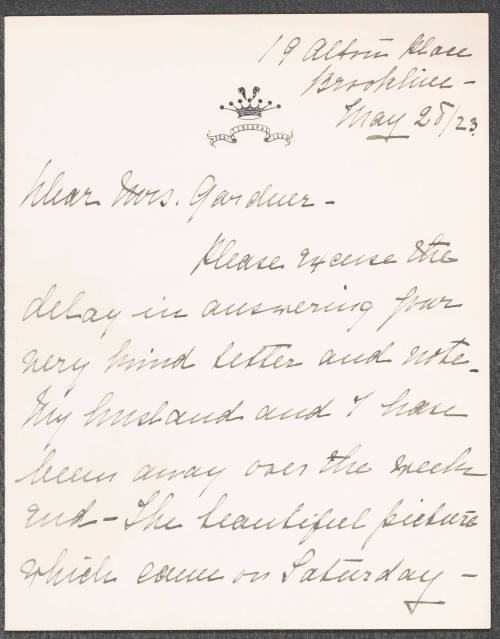 19 Alton Place
Brookline -
May 28/23.
Dear Mrs. Gardner -
Please excuse the
delay in answering your
very kind letter and note.
My husband and I have
been away over the week
end - The beautiful picture
which came on Saturday -